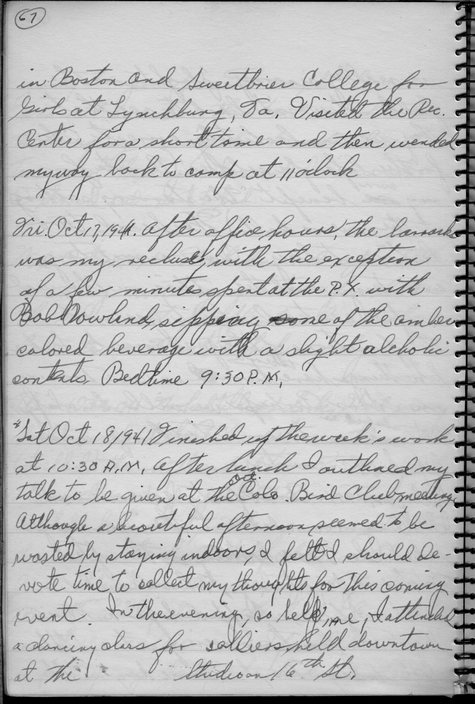 67
in Boston and Sweetbrier College for
Girls at Lynchburg, Va. Visited the Rec.
Center for a short time and then wended
my way back to camp at 11 o'clock
Fri. Oct 17, 1941. After office hours, the barracks
was my recluse, with the exception
of a few minutes spent at the P.X. with
Bob Nowland, sipping some of the amber
colored beverage with a slight alcoholic
contents. Bedtime 9:30 P.M.
Sat Oct 18, 1941 Finished up the week's work
at 10:30 A.M. After lunch I outlined my
talk to be given at the Colo. Bird Club meeting
Although a beautiful afternoon seemed to be
wasted by staying indoors, I felt I should de-
vote time to collect my thoughts for this coming
event. In the evening, so help me, I attended
a dancing class for soldiers held downtown
at the Studio on 16th St.